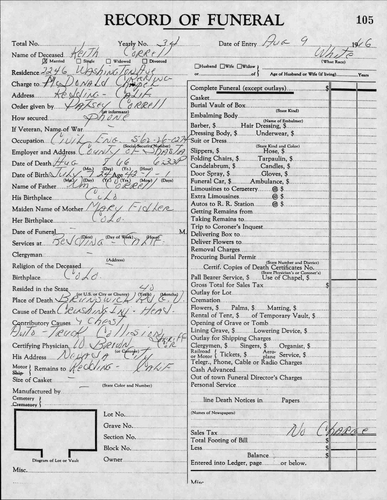 RECORD OF FUNERAL 105
Total No. Yearly No. 3 Date of Entry Aug 9
Name of Deceased Keith Correll White
Married Single Widowed Divorced (What Race)
Residence 2246 Washington Ave Husband Wife Widow of
Charge to McDonald Chapel Age of Husband or Wife (if living) Years
Redding - Calif
Order given by Correll
How secured Phone
If Veteran, Name of War
Occupation Civil Eng.
Employer and Address County of Shasta
Date of Death Aug 8
Date of Birth July 9 Age
Name of Father Correll
His Birthplace Colo
Maiden Name of Mother Mary Fisher
Her Birthplace Colo.
Date of Funeral
Services at Redding - Calif.
Clergyman
Religion of the Deceased
Birthplace Colo
Resided in the State
Place of Death Brunswick
Cause of Death Crushing In. - Head
Contributory Causes & Chest
Auto - Truck Collision
Certifying Physician W. Brown
His Address Nevada City
Motor Ship Remains to Redding - Calif
Size of Casket
(State Color and Number)
Manufactured by
Cemetery
Crematory
Lot No.
Grave No.
Section No.
Block No.
Owner
Diagram of Lot or Vault
Misc.
Complete Funeral (except outlays) $
Casket
Burial Vault of Box
(State Kind)
Embalming Body
(Name of Embalmer)
Barber, $ Hair Dressing, $
Dressing Body, $ Underwear, $
Suit or Dress
(State Kind and Color)
Slippers, $ Hose, $
Folding Chairs, $ Tarpaulin, $
Candelabrum, $ Candles, $
Door Spray, $ Gloves, $
Funeral Car, $ Ambulance, $
Limousines to Cemetery @ $
Extra Limousines @ $
Autos to R. R. Station @ $
Getting Remains from
Taking Remains to
Trip to Coroner's Inquest
Delivering Box to
Deliver Flowers to
Removing Charges
Procuring Burial Permit
(State Number and District)
Certif. Copies of Death Certificates No.
Pall Bearer Service, $ Use of Chapel, $
Gross Total for Sales Tax $
Outlay for Lot
Cremation
Flowers, $ Palms, $ Matting, $
Rental of Tent, $ of Temporary Vault, $
Opening of Grave or Tomb
Lining Grave, $ Lowering Device, $
Outlay for Shipping Charges
Clergymen, $ Singers, $ Organist, $
Railroad or Motor Tickets, $ Aeroplane Service, $
Telegr., Phone, Cable or Radio Charges
Cash Advanced
Out of town Funeral Director's Charge
Personal Service
line Death Notices in Papers
(Names of Newspapers)
Sales Tax No Charge
Total Footing of Bill $
Less
Balance $
Entered into Ledger, page or below.
Misc.